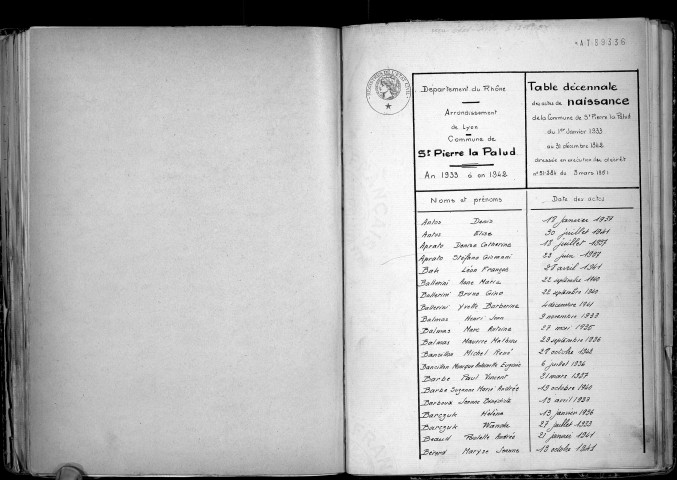 *AT59336
Département du Rhône
Arrondissement
de Lyon
Commune de
St Pierre la Palud
An 1933 à an 1942
Table décennale
des actes de naissance
de la Commune de St Pierre la Palud
du 1er Janvier 1933
au 31 décembre 1942
dressée en exécution du décret
n° 51-284 du 3 mars 1951
Noms et prénoms Date des actes
Antos Denis 18 janvier 1937
Antos Elise 30 juillet 1941
Aprato Denise Catherine 18 juillet 1937
Aprato Stéfano Giovanni 23 juin 1937
Bah Léon François 28 avril 1941
Ballerini Anne Maria 22 septembre 1940
Ballerini Bruno Gino 22 septembre 1940
Ballerini Yvette Barberine 4 décembre 1941
Balmas Henri Jean 9 novembre 1933
Balmas Marc Antoine 27 mai 1935
Balmas Maurice Mathieu 20 septembre 1936
Bancillon Michel René 28 octobre 1942
Bancillon Monique Antoinette Eugénie 6 juillet 1936
Barbe Paul Vincent 31 mars 1937
Barbe Suzanne Marie Andrée 19 octobre 1940
Barboux Jeanne Bénédicte 13 avril 1937
Barczuk Hélène 19 janvier 1936
Barczuk Wanda 27 juillet 1933
Beaud Paulette Andrée 21 janvier 1941
Bérard Maryse Jeanne 18 octobre 1941